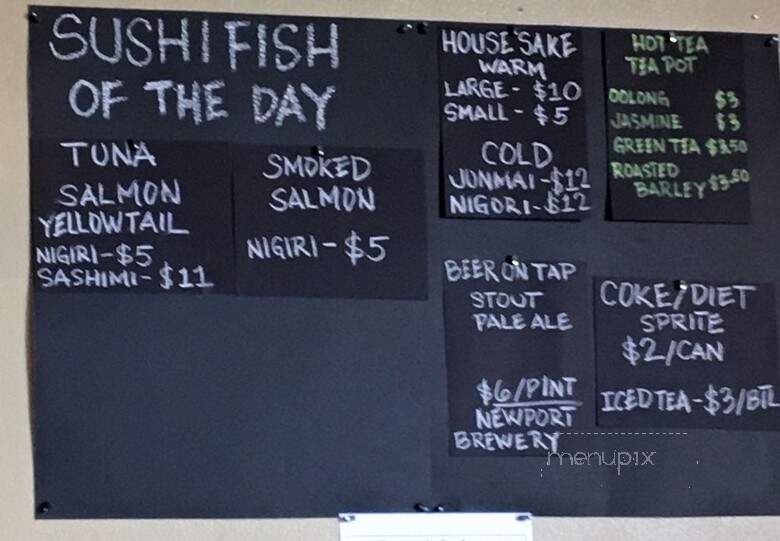 SUSHI FISH
OF THE DAY
TUNA
SALMON
YELLOWTAIL
NIGIRI-$5
SASHIMI-$11
SMOKED
SALMON
NIGIRI-$5
HOUSE SAKE
WARM
LARGE-$10
SMALL-$5
COLD
JUNMAI-$12
NIGORI-$12
HOT TEA
TEA POT
OOLONG $3
JASMINE $3
GREEN TEA $3.50
ROASTED
BARLEY $3.50
BEER ON TAP
STOUT
PALE ALE
$6/PINT
NEWPORT
BREWERY
COKE/DIET
SPRITE
$2/CAN
ICED TEA-$3/BTL
menupix